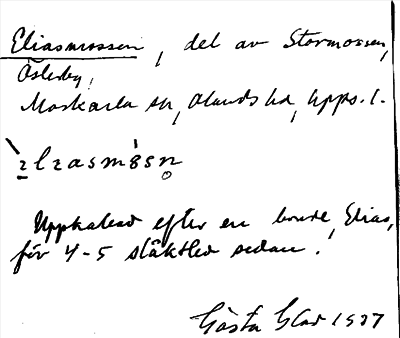 Eliasmossen, del av Stormossen,
Österby,
Morkarla sn, Olands hd, Upps. l.
ìlıasmósn̥
Uppkallad efter en bonde, Elias,
för 4-5 släktled sedan.
Gösta Glad 1937